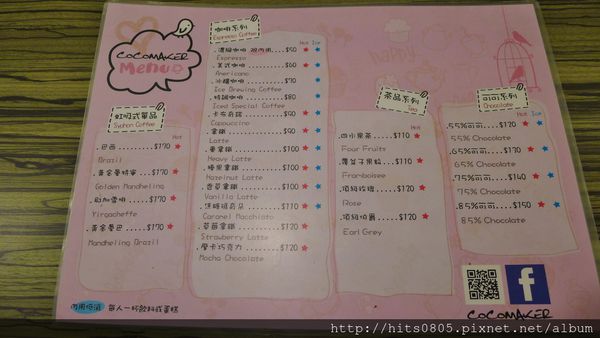 COCOMAKER
Menu
虹吸式單品
Syphon Coffee
Hot
.巴西......$170
Brazil
.黃金曼特寧...$170
Golden Mandheling
.耶加雪啡....$170
Yirgacheffe
.黃金曼巴....$170
Mandheling Brazil
咖啡系列
Espresso Coffee
Hot Ice
.濃縮咖啡 $50
Espresso
.美式咖啡.......$60
Americano
.冰釀咖啡.......$70
Ice Brewing Coffee
.特調咖啡.......$80
Iced Special Coffee
.卡布奇諾.......$90
Cappuccino
.拿鐵.........$90
Latte
.重拿鐵.......$100
Heavy Latte
.榛果拿鐵......$100
Hazelnut Latte
.香草拿鐵......$100
Vanilla Latte
.焦糖瑪奇朵.....$110
Caramel Macchiato
.草莓拿鐵......$120
Strawberry Latte
.摩卡巧克力.....$120
Mocha Chocolate
茶品系列
Tea
Hot
.四小果茶....$110
Four Fruits
.覆盆子果粒...$110
Framboisee
.頂級玫瑰....$120
Rose
.頂級伯爵....$120
Earl Grey
可可系列
Chocolate
Hot Ice
.55%可可...$120
55% Chocolate
.65%可可...$130
65% Chocolate
.75%可可...$140
75% Chocolate
.85%可可...$150
85% Chocolate
內用低消 每人一杯飲料或蛋糕
f
COCOMAKER
http://hits0805.pixnet.net/album